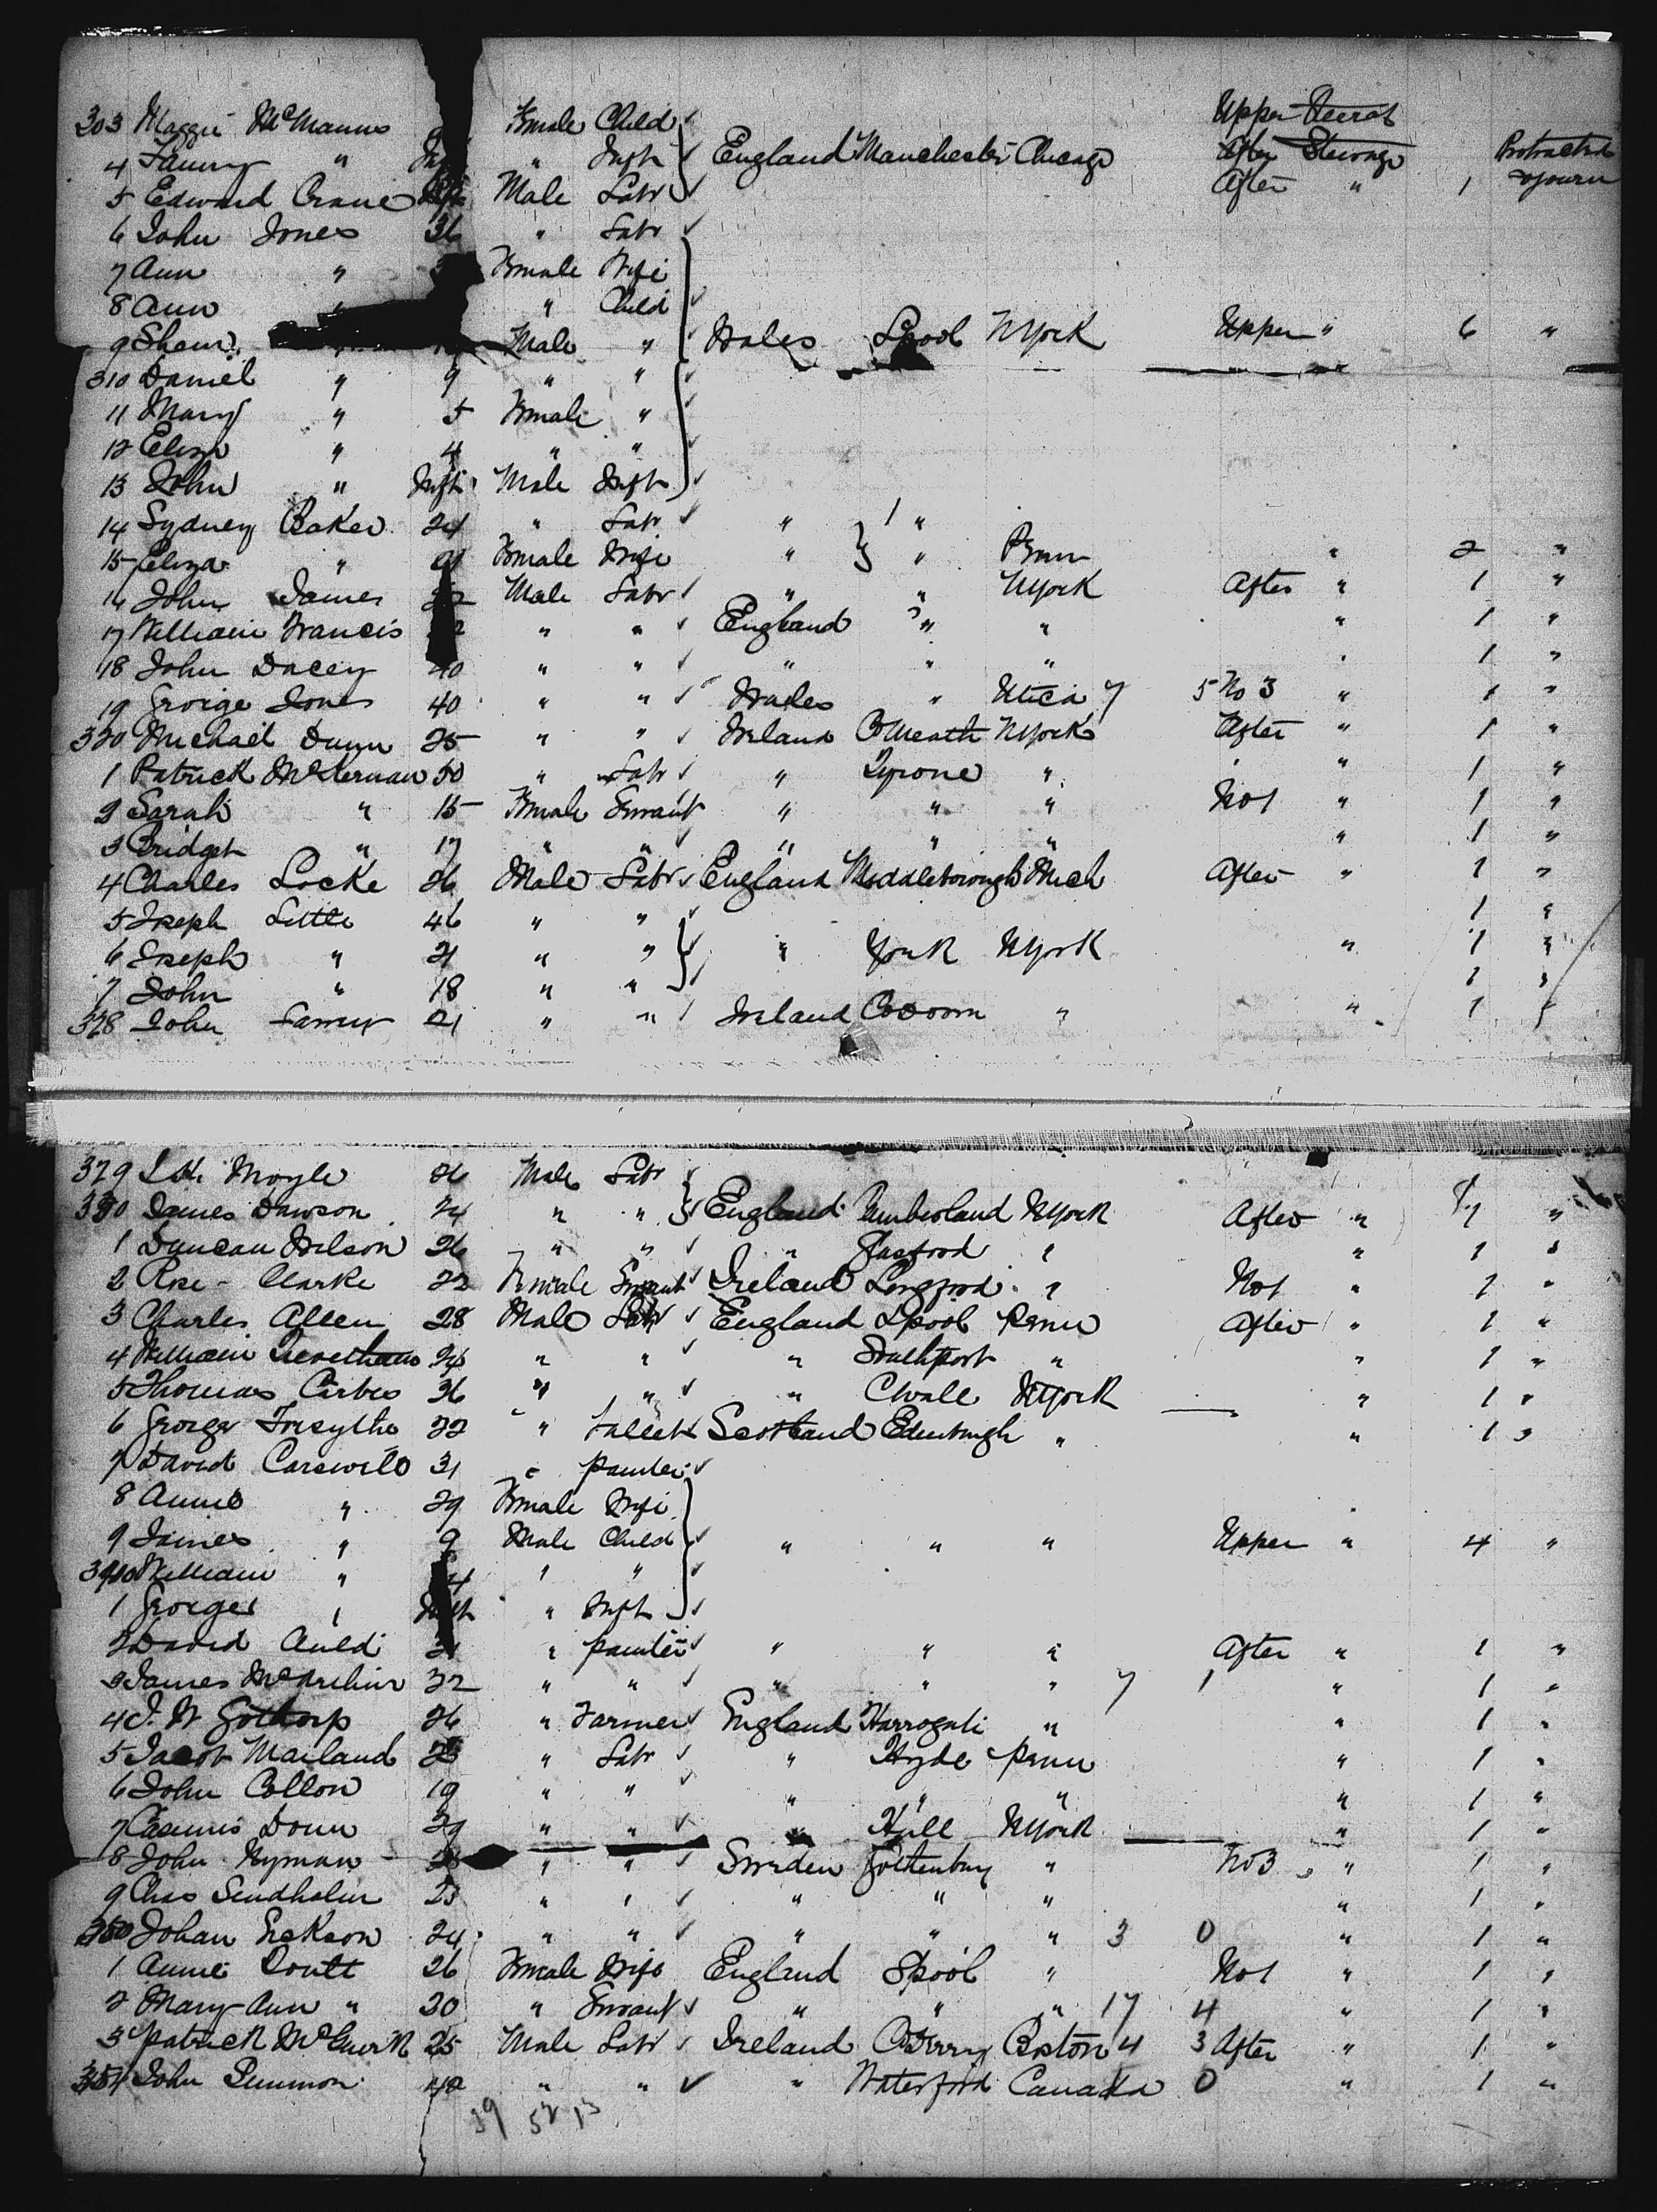 Upper Steerat
303 Maggie McManus Fmale Child
4 Fanny " Inft " Inft England Manchester Chicago After Steerage Protracted
5 Edward Crane Male Labr After " 1 sojourn
6 John Jones 36 " Labr
7 Ann " Fmale Wife
8 Ann " " Child
9 " Male " Wales Lpool NYork Upper " 6 "
310 Daniel " 9 " "
11 Mary " 5 Fmale "
12 Eliza " 4 " "
13 John " Inft Male Inft
14 Sydney Baker 24 " Labr " "
15 Eliza " 21 Fmale Wife " " Penn " 2 "
16 John James 22 Male Labr " " NYork After " 1 "
17 William Francis " " England " " " 1 "
18 John Dacey 40 " " " " " " 1 "
19 George Jones 40 " " Wales " Utica 7 5 No 3 " 1 "
320 Michael Dunn 25 " " Ireland CoMeath NYork After " 1 "
1 Patrick McKernan 50 " Labr " Tyrone " " " 1 "
2 Sarah " 15 Fmale Srvant " " " No1 " 1 "
3 Bridget " 17 " " " " " " 1 "
4 Charles Locke 26 Male Labr England Middleborough Mich After " 1 "
5 Joseph Little 46 " " 1 "
6 Joseph " 21 " " " York NYork " 1 "
7 John " 18 " " 1 "
328 John 21 " " Ireland CoDown " " 1 "
329 Moyle 26 Male Labr
330 James Dawson 24 " " England Cumberland NYork After " 1 "
1 Duncan Wilson 26 " " " " " 1 "
2 Rose Clarke 22 Fmale Srvant Ireland Longford " No1 " 1 "
3 Charles Allen 28 Male Labr England Lpool Penn After " 1 "
4 William 24 " " " Southport " " 1 "
5 Thomas 36 " " " NYork " 1 "
6 George Forsythe 22 " Scotland Edinburgh " " 1 "
7 David Carswell 31 " painter
8 Annie " 29 Fmale Wife
9 James " 9 Male Child " " " Upper " 4 "
340 William " 4 " "
1 George " Inft " Inft
2 David Auld " painter " " " After " 1 "
3 James McArthur 32 " " " " " 7 1 " 1 "
4 J. W 26 " Farmer England Harrogate " " 1 "
5 Jacob Mailand " Labr " Hyde Penn " 1 "
6 John Collon 19 " " " " " " 1 "
7 29 " " " Hull NYork " 1 "
8 John Nyman " " Sweden Gottenburg " No3 " 1 "
9 Chas Lindholm 23 " " " " " " 1 "
350 Johan Erekson 24 " " " " " 3 0 " 1 "
1 Annie 26 Fmale Wife England Lpool " No1 " 1 "
2 Mary Ann " 20 " Srvant " " " 17 4 " 1 "
3 Patrick McGuirk 25 Male Labr Ireland CoDerry Boston 4 3 After " 1 "
354 John 42 " " " Waterford Canada 0 " 1 "
39 52 13